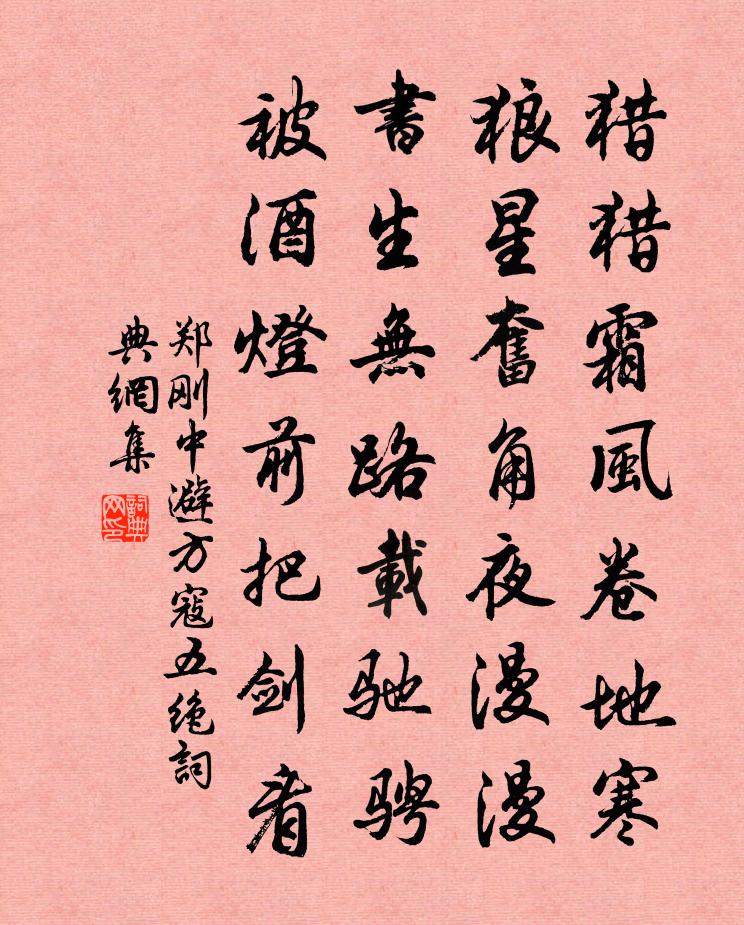 猎猎霜風卷地寒
狼星奮角夜漫漫
書生無路載馳骋
被酒燈前把剑看
郑刚中避方寇五绝詞
典網集
詞典網印